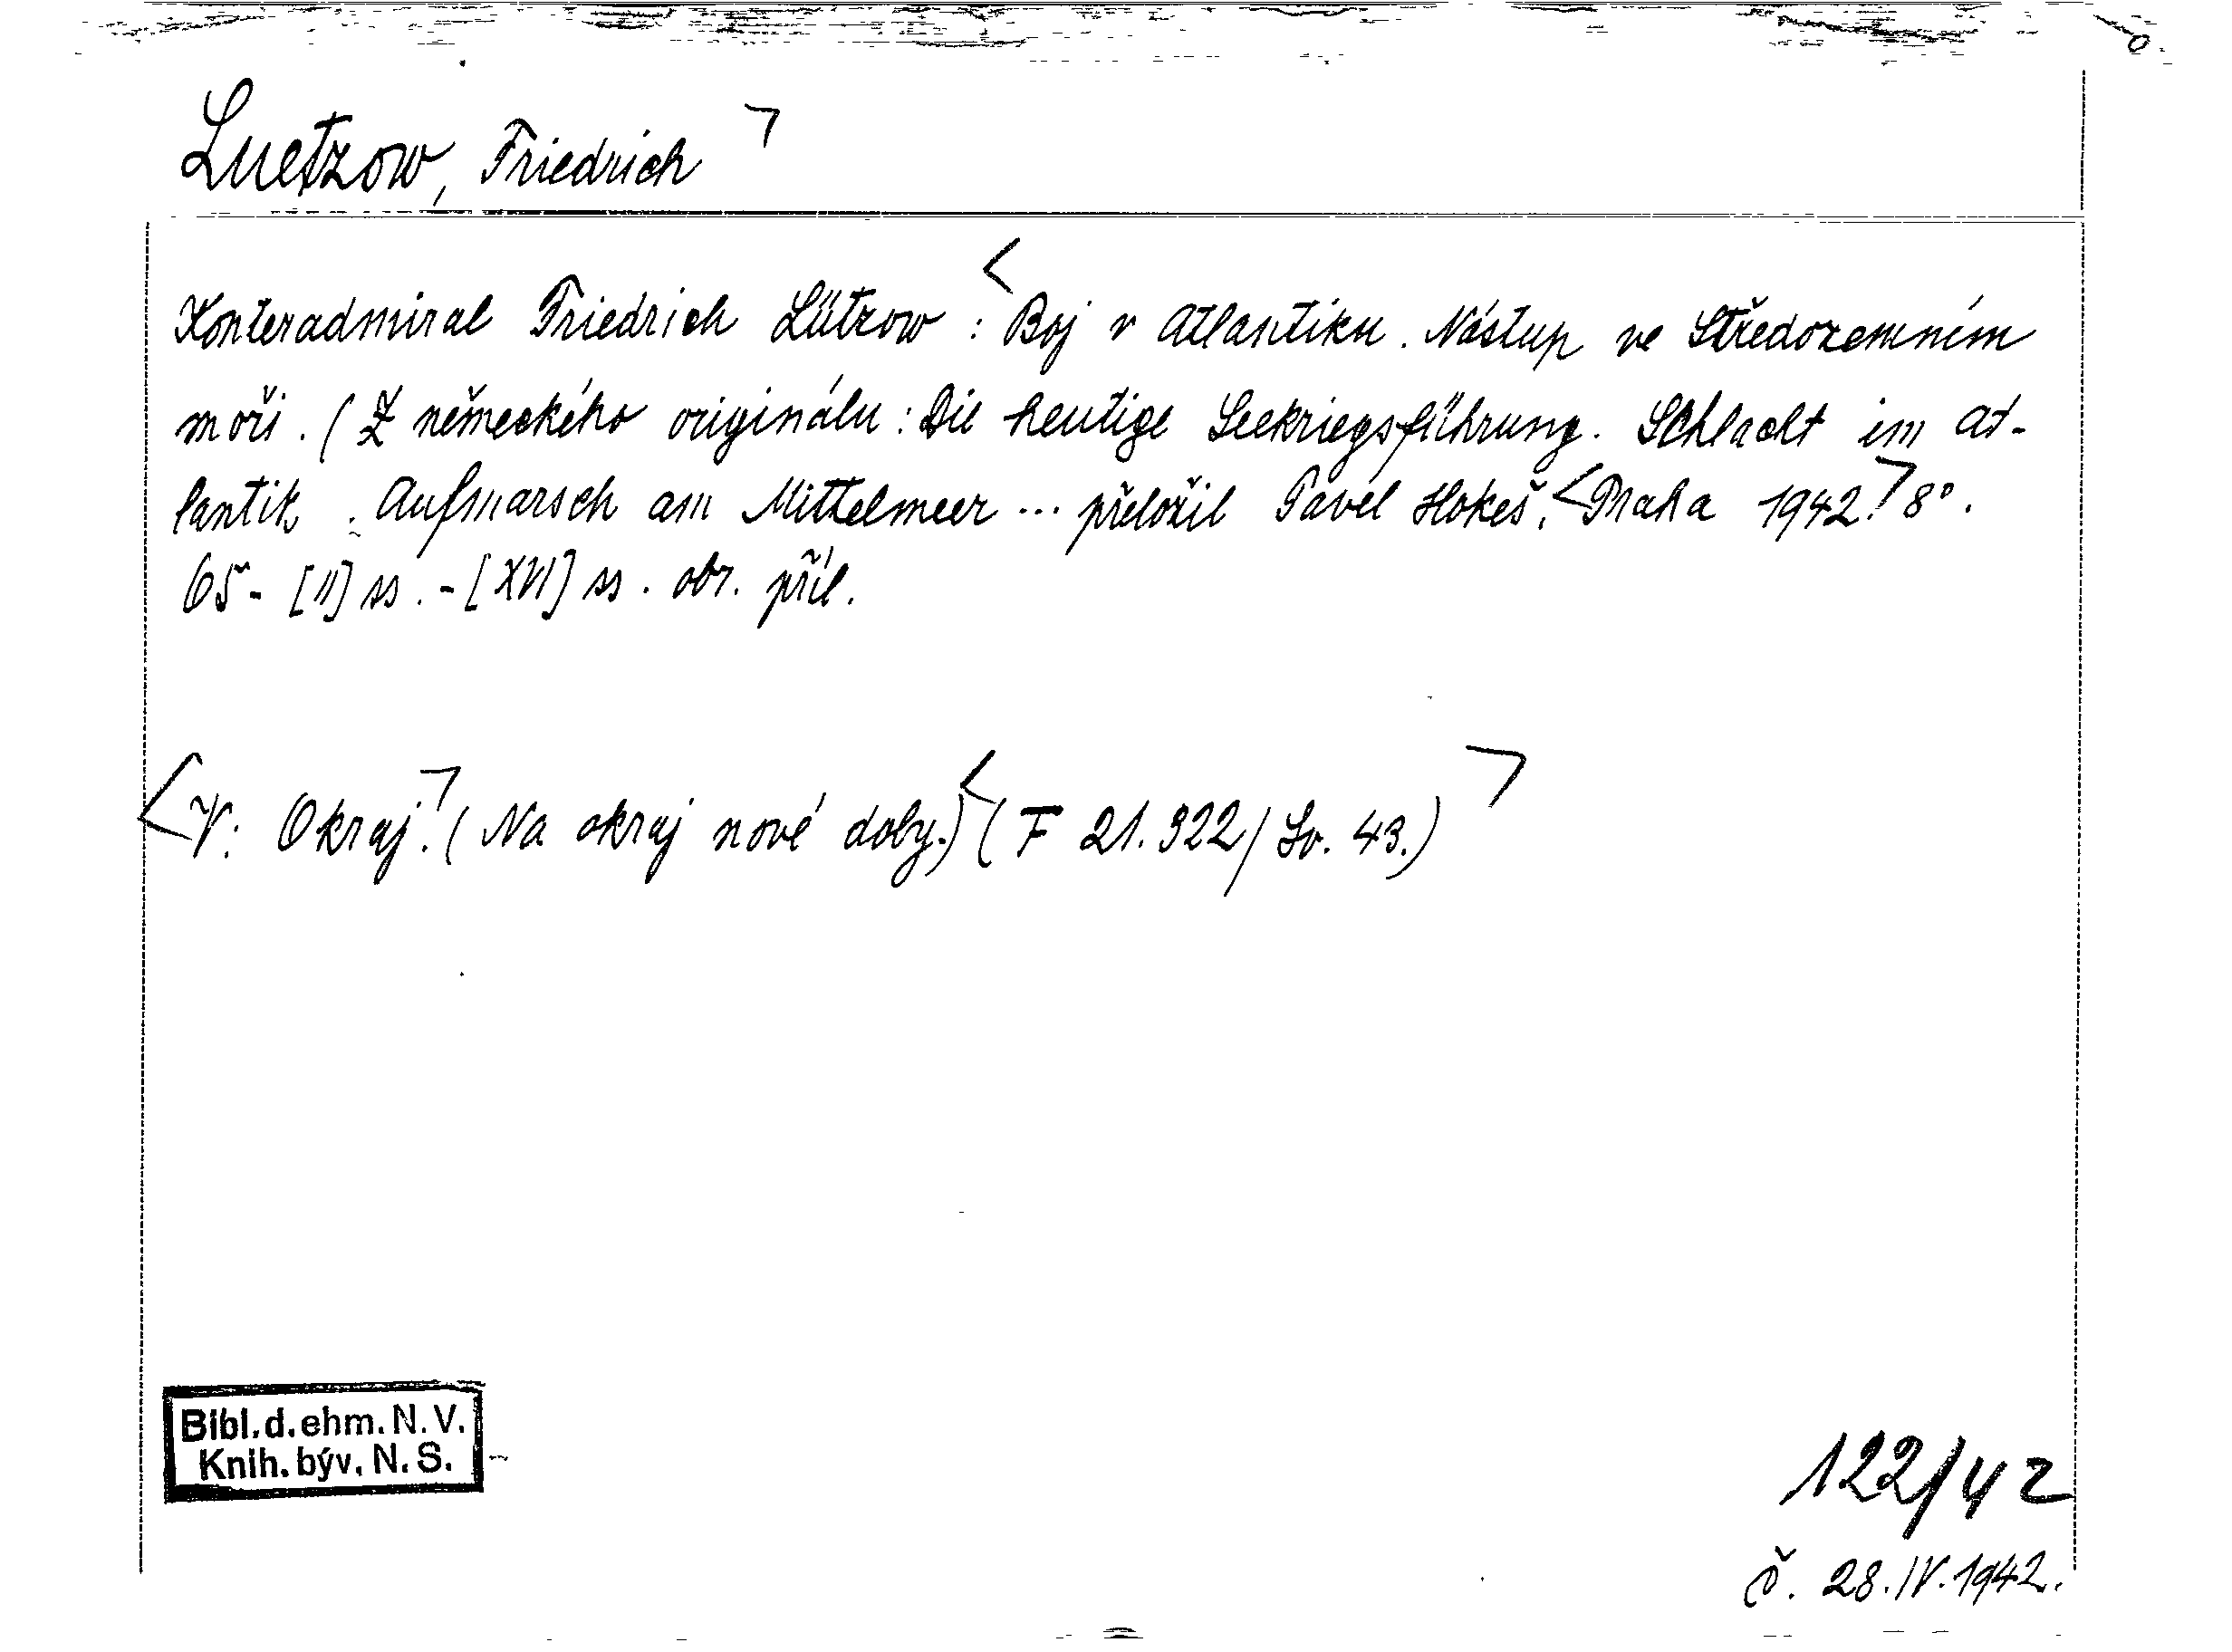 Luetzow, Friedrich
Konteradmiral Friedrich Lützow : Boj v Atlantiku. Nástup ve Středozemním
moři. (Z německého originálu : Die heutige Seekriegsführung. Schlacht im At-
lantik. Aufmarsch am Mittelmeer ... přeložil Pavel Hokeš. Praha 1942. 8°.
65 - [II] ss. - [XVI] ss. obr. příl.
V: Okraj. (Na okraj nové doby.) (F 21.922/Sv. 43.)
Bibl. d. ehm. N. V.
Knih. býv. N. S.
122/42
č. 28.IV.1942.